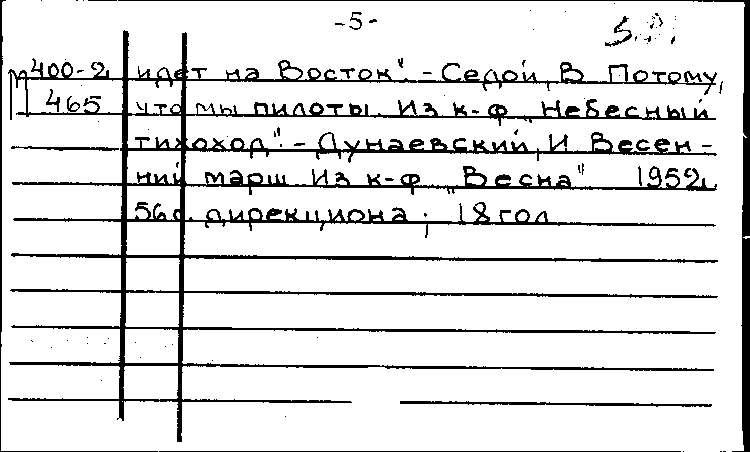 -5-
П400-2 идет на Восток" - Седой, В Потому,
465 что мы пилоты Из к-ф „Небесный
тихоход" - Дунаевский, И Весен-
ний марш Из к-ф „Весна" 1952
56 с. дирекциона; 18 гол